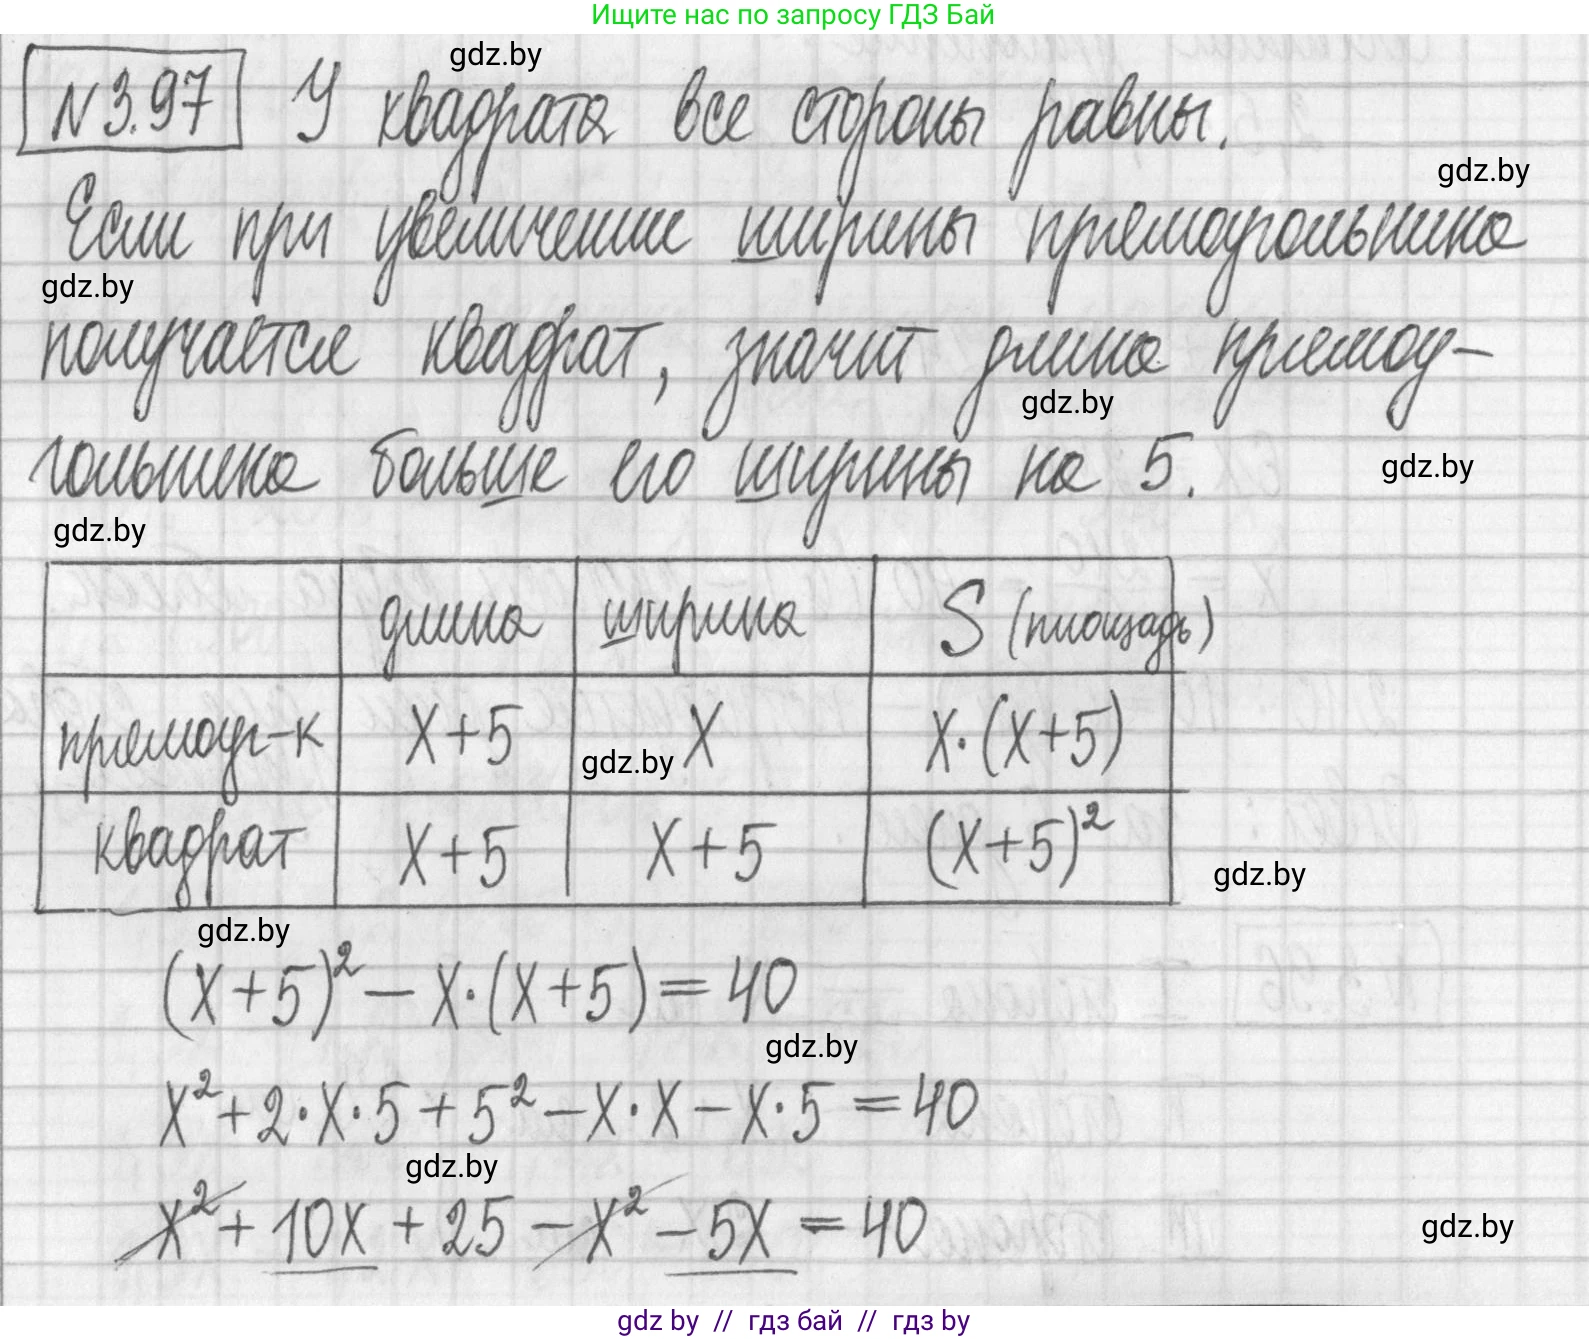 Ищите нас по запросу ГДЗ Бай
gdz.by
N 3.97 У квадрата все стороны равны.
gdz.by
Если при увеличении ширины прямоугольника
gdz.by
получается квадрат, значит длина прямоу-
gdz.by
гольника больше его ширины на 5.
gdz.by
gdz.by
длина ширина S (площадь)
прямоуг-к x+5 x x·(x+5)
gdz.by
квадрат x+5 x+5 (x+5)²
gdz.by
gdz.by
(x+5)² – x·(x+5) = 40
gdz.by
x² + 2·x·5 + 5² – x·x – x·5 = 40
gdz.by
x² + 10x + 25 – x² – 5x = 40
gdz.by
gdz by // гдз бай // гдз by